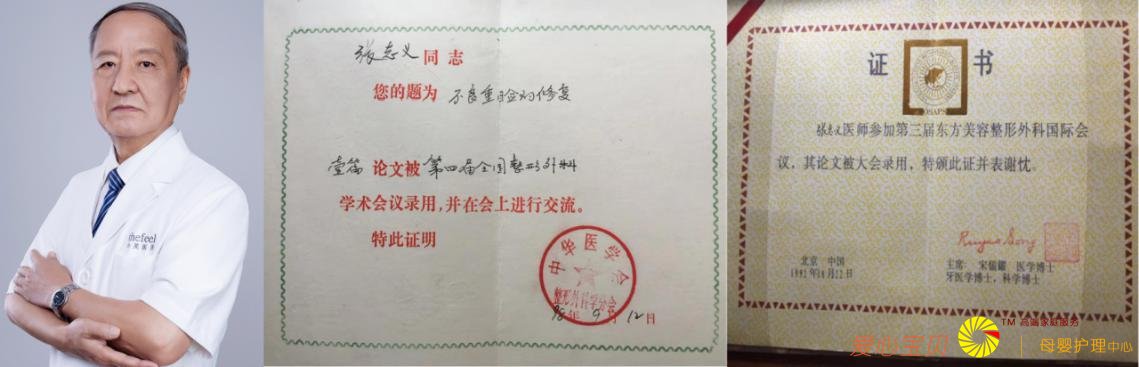 thefeel
张志义同志
您的题为 不良重睑的修复
壹篇 论文被 第四届全国整形外科
学术会议录用,并在会上进行交流。
特此证明
中华医学会
整形外科学分会
98年9月12日
证 书
张志义医师参加第三届东方美容整形外科国际会
议，其论文被大会录用，特颁此证并表谢忱。
Ruyao Song
北京 中国
主席: 宋儒耀 医学博士
牙医学博士，科学博士
爱心宝贝
TM 高端家庭服务
母婴护理中心